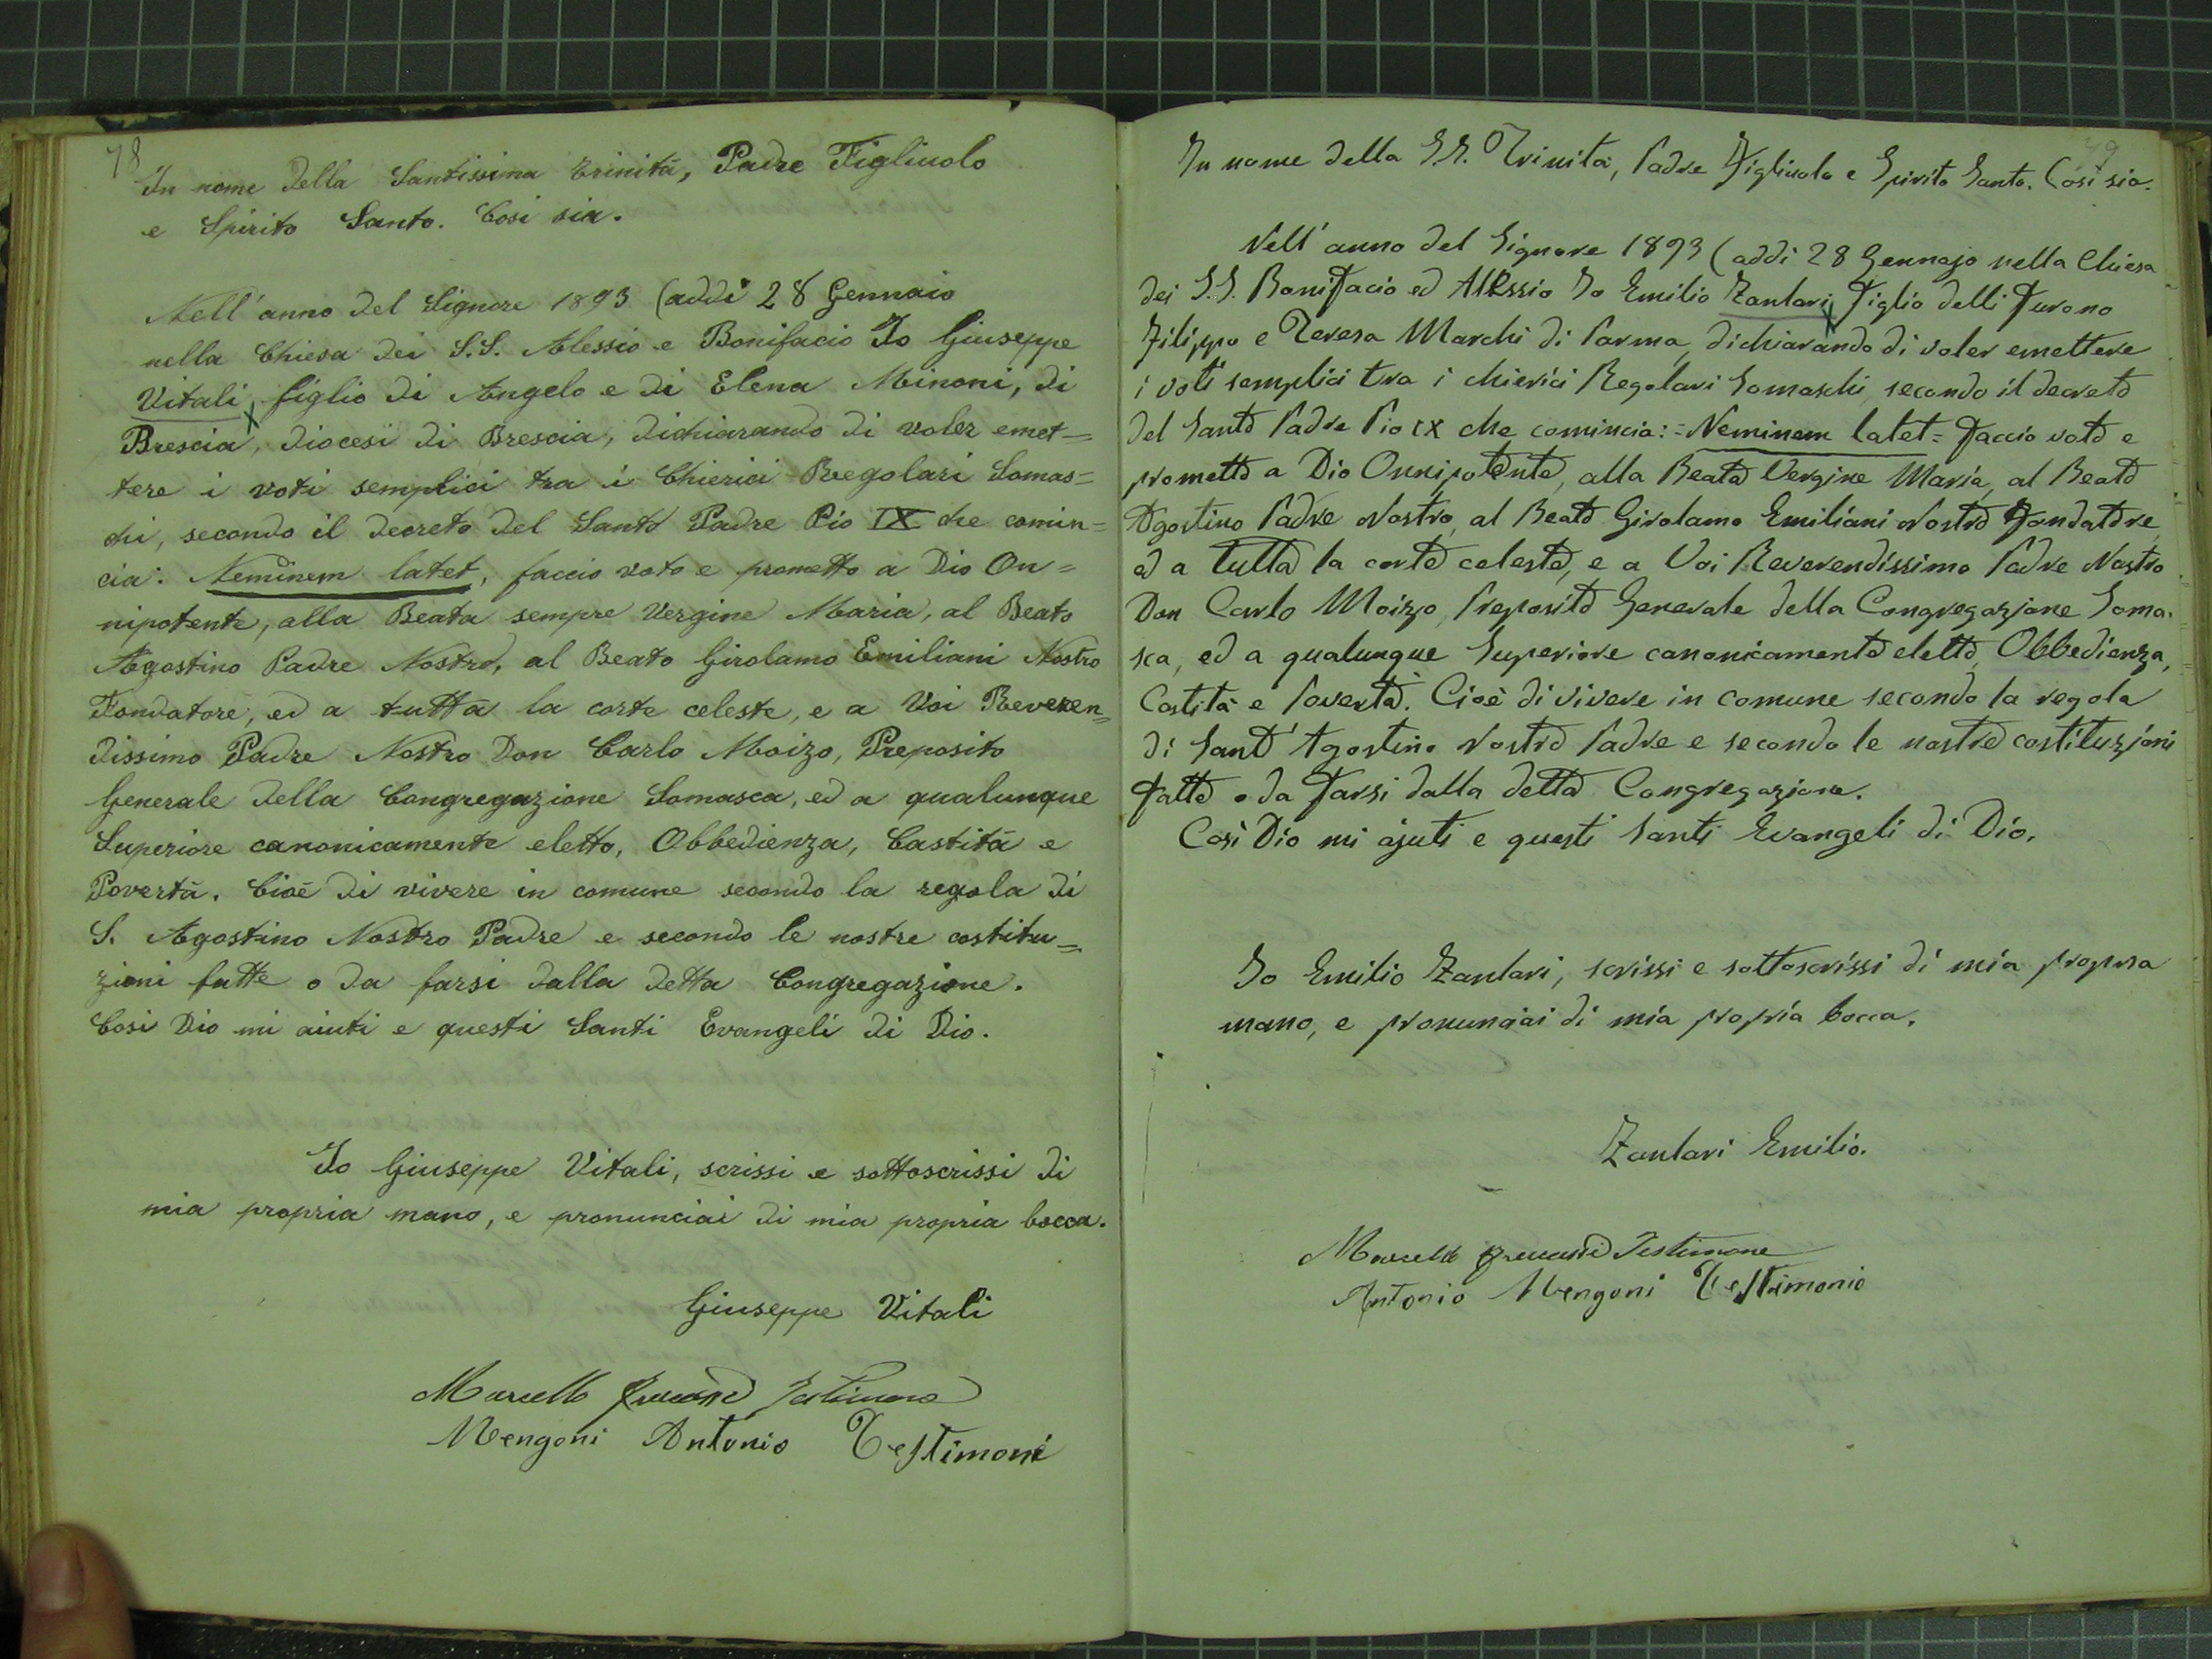 78
In nome della Santissima Trinità, Padre Figliuolo
e Spirito Santo. Così sia.
Nell'anno del Signore 1893 (addì 28 Gennaio
nella Chiesa dei S.S. Alessio e Bonifacio Io Giuseppe
Vitali, figlio di Angelo e di Elena Minoni, di
Brescia, diocesi di Brescia, dichiarando di voler emet=
tere i voti semplici tra i Chierici Regolari Somas=
chi, secondo il decreto del Santo Padre Pio IX che comin=
cia: Neminem latet, faccio voto e prometto a Dio On=
nipotente, alla Beata sempre Vergine Maria, al Beato
Agostino Padre Nostro, al Beato Girolamo Emiliani Nostro
Fondatore, ed a tutta la corte celeste, e a Voi Reveren=
dissimo Padre Nostro Don Carlo Moizo, Preposito
Generale della Congregazione Somasca, ed a qualunque
Superiore canonicamente eletto, Obbedienza, Castità e
Povertà. Cioè di vivere in comune secondo la regola di
S. Agostino Nostro Padre e secondo le nostre costitu=
zioni fatte o da farsi dalla detta Congregazione.
Così Dio mi aiuti e questi Santi Evangeli di Dio.
Io Giuseppe Vitali, scrissi e sottoscrissi di
mia propria mano, e pronunciai di mia propria bocca.
Giuseppe Vitali
Marcello Testimone
Mengoni Antonio Testimoni
79
In nome della S.S. Trinità, Padre Figliuolo e Spirito Santo. Così sia.
Nell'anno del Signore 1893 (addì 28 Gennajo nella Chiesa
dei S.S. Bonifacio ed Alessio Io Emilio Zanlari, figlio delli furono
Filippo e Teresa Marchi di Parma, dichiarando di voler emettere
i voti semplici tra i chierici Regolari Somaschi, secondo il decreto
del Santo Padre Pio IX che comincia: =Neminem latet= faccio voto e
prometto a Dio Onnipotente, alla Beata Vergine Maria, al Beato
Agostino Padre Nostro, al Beato Girolamo Emiliani Nostro Fondatore,
ed a tutta la corte celeste, e a Voi Reverendissimo Padre Nostro
Don Carlo Moizo, Preposito Generale della Congregazione Soma=
sca, ed a qualunque Superiore canonicamente eletto, Obbedienza,
Castità e Povertà. Cioè di vivere in comune secondo la regola
di Sant'Agostino Nostro Padre e secondo le nostre costituzioni
fatte o da farsi dalla detta Congregazione.
Così Dio mi ajuti e questi Santi Evangeli di Dio.
Io Emilio Zanlari, scrissi e sottoscrissi di mia propria
mano, e pronunciai di mia propria bocca.
Zanlari Emilio.
Marcello Testimone
Antonio Mengoni Testimonio